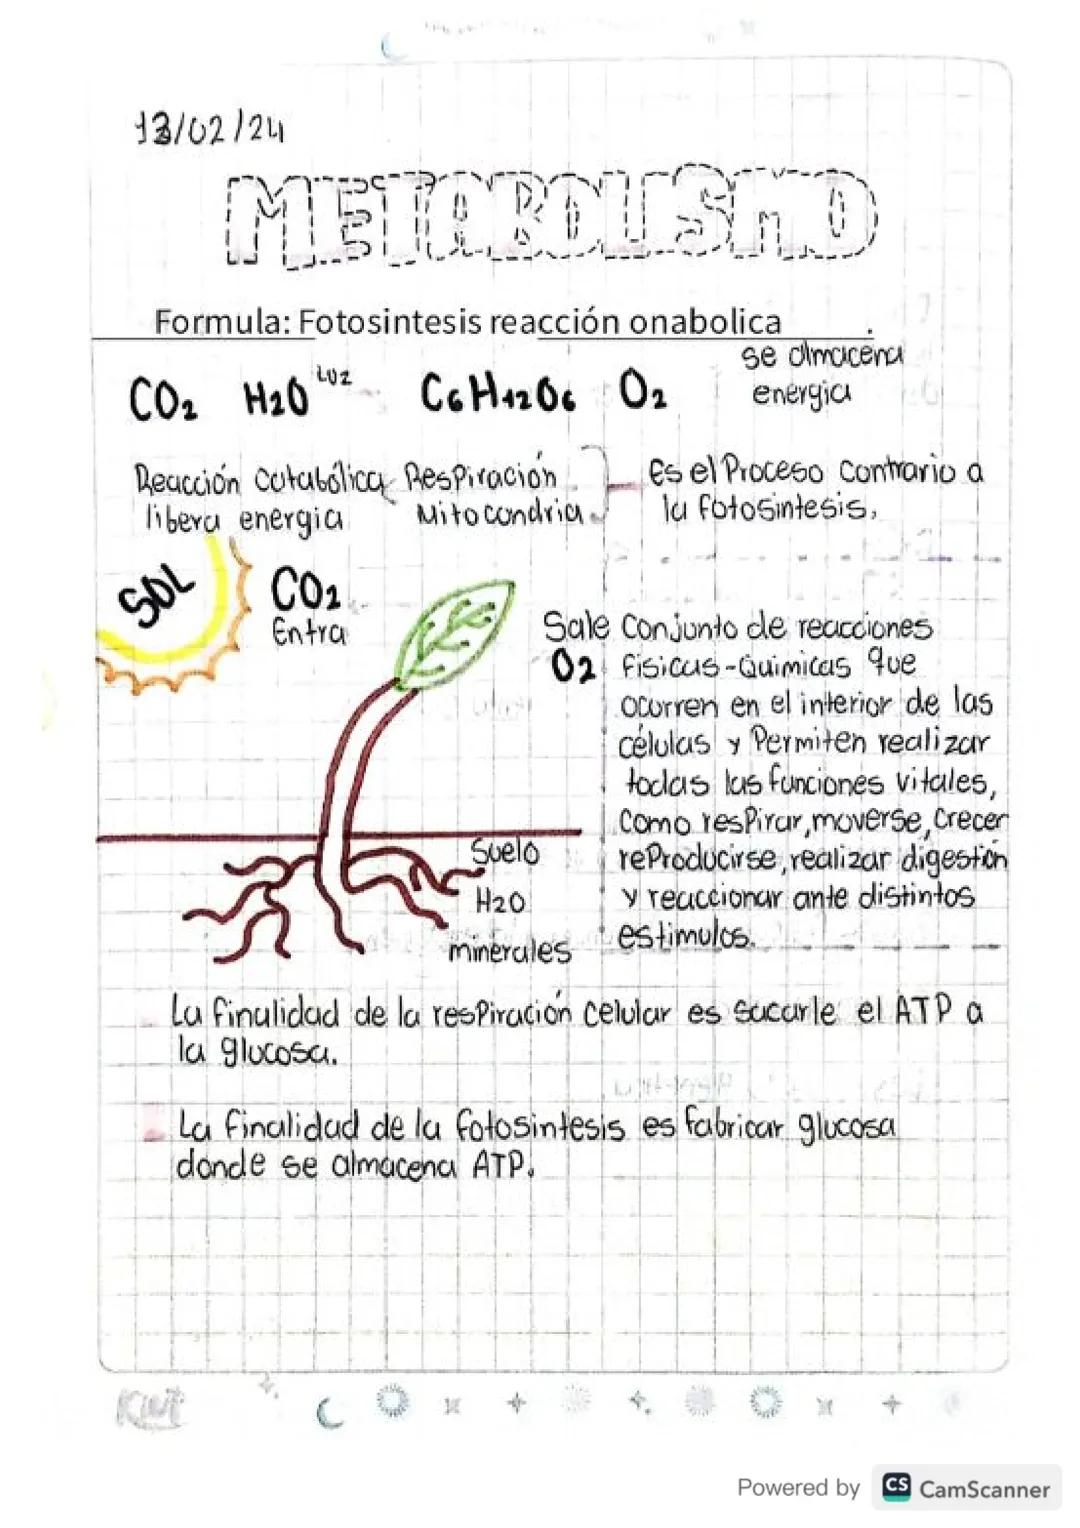 13/02/24
METABOLISMO
Formula: Fotosintesis reacción onabolica.
se almacena
energia
CO2 H2O LUZ C6H12O6 O2
Reacción Catabólica Respiración
libera energia Mitocondria
Es el Proceso contrario a
la fotosintesis.
SOL
CO2
Entra
Sale
O2
Conjunto de reacciones
fisicas-Quimicas que
ocurren en el interior de las
células y Permiten realizar
todas las funciones vitales,
como resPirar, moverse, crecer
reProducirse, realizar digestión
y reaccionar ante distintos
estimulos.
Suelo
H2O
minerales
La finalidad de la resPiración celular es sacarle el ATP a
la glucosa.
La finalidad de la fotosintesis es fabricar glucosa
donde se almacena ATP.
Powered by CS CamScanner